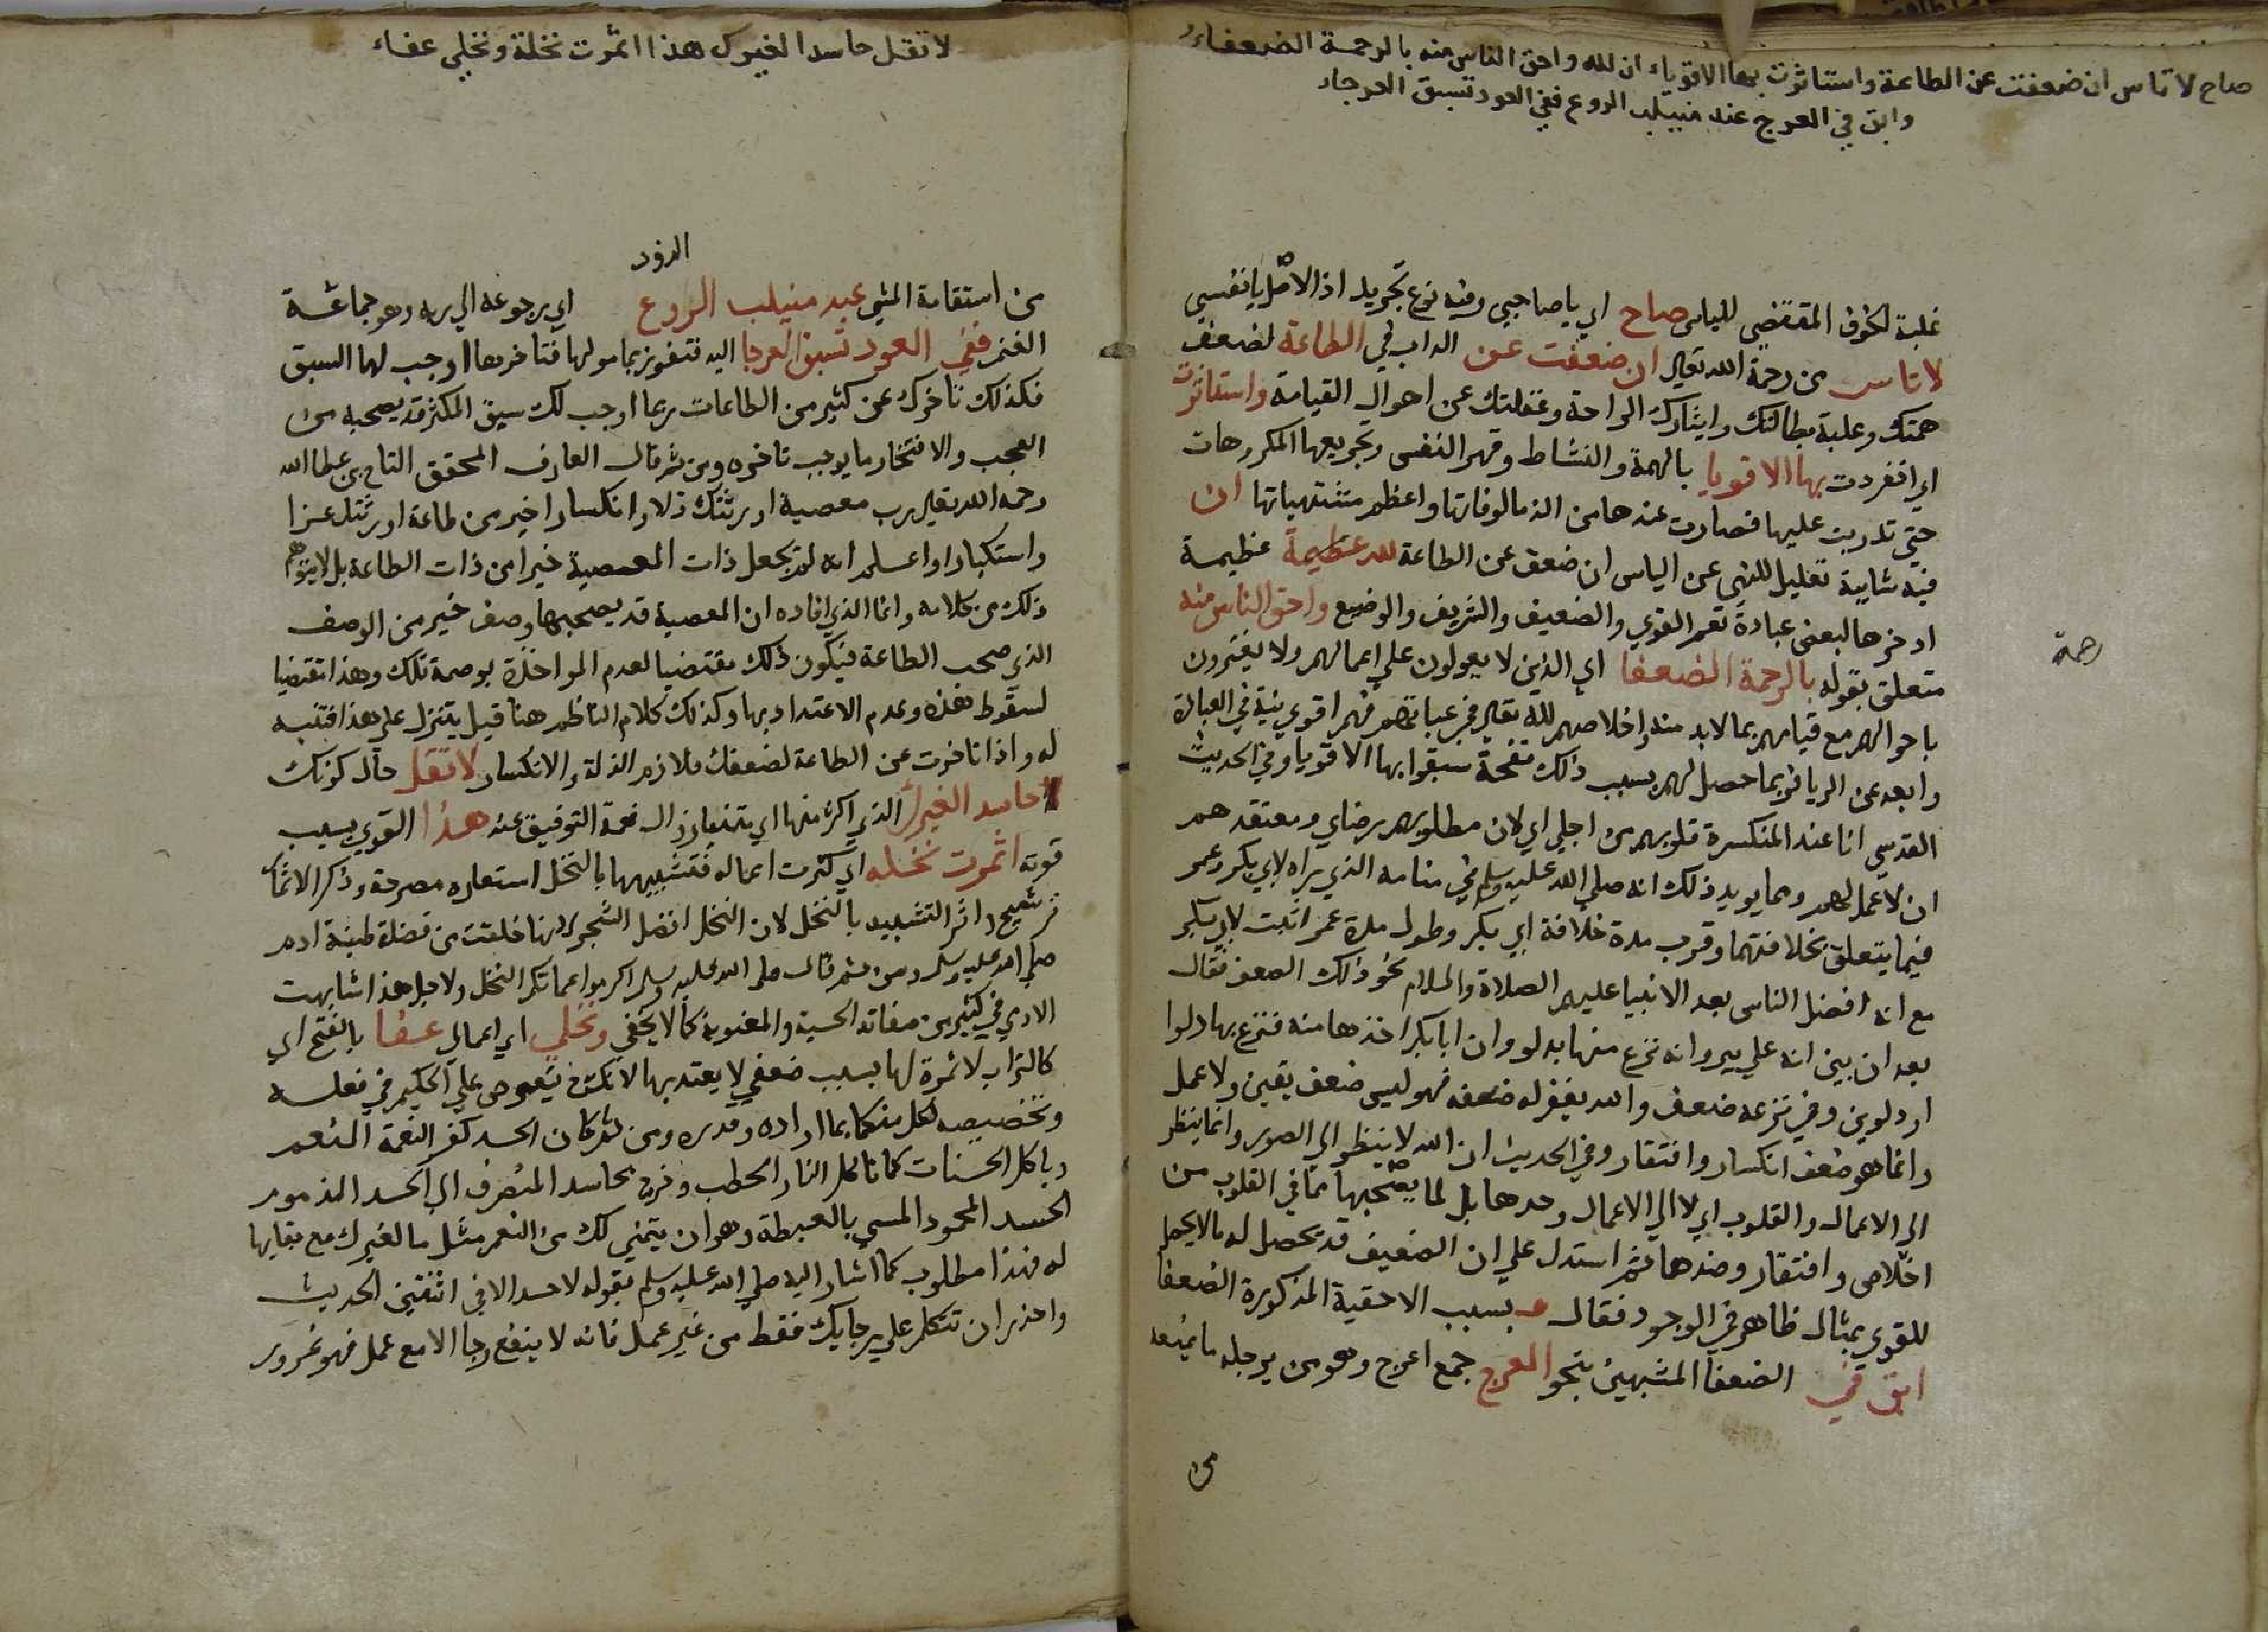 صاح لا تاس ان ضعفت عن الطاعة واستاثرت بها الاقوياء ان لله واحق الناس منه بالرحمة الضعفاء
وابق في العرج عند منيلب الروع ففي العود تسبق العرجاء
غلبة الخوف المقتضي للياس صاح اي يا صاحبي وفيه نوع تجريد اذ الاصل يا نفسي
لا تاس من رحمة الله تعالي ان ضعفت عن الداب في الطاعة لضعف
همتك وغلبة بطالتك وايثارك الراحة وغفلتك عن احوال القيامة واستاثرت
اي انفردت بها الاقويا بالهمة والنشاط وقهر النفس وتجريعها المكروهات
حتي تدربت عليها فصارت عندها من الذ مالوفاتها واعظم مشتهياتها ان
فيه شايبة تعليل للنهي عن الياس ان ضعف عن الطاعة لله عظيمة عظيمة
ادخرها لبعض عباده تعم القوي والضعيف والشريف والوضيع واحق الناس منه
رحمة
متعلق بقوله بالرحمة الضعفا اي الذين لا يعولون علي اعمالهم ولا يغترون
باحوالهم مع قيامهم بما لابد منه واخلاصهم لله تعالي في عباداتهم فهم اقوي نية في العبادة
وابعد عن الريا فربما حصل لهم بسبب ذلك نفحة سبقوا بها الاقويا وفي الحديث
القدسي انا عند المنكسرة قلوبهم من اجلي اي لان مطلوبهم رضاي ومعتقدهم
ان لا عمل لهم ومما يويد ذلك انه صلي الله عليه وسلم في منامه الذي يراه لابي بكر وعمر
فيما يتعلق بخلافتهما وقرب مدة خلافة ابي بكر وطول مدة عمر اثبت لابي بكر
مع انه افضل الناس بعد الانبيا عليهم الصلاة والسلام نحو ذلك الضعف فقال
بعد ان بين انه علي بير وانه نزع منها بدلو وان ابا بكر اخذها منه فنزع بها دلوا
او دلوين وفي نزعه ضعف والله يغفر له ضعفه فهو ليس ضعف يقين ولا عمل
وانما هو ضعف انكسار وافتقار وفي الحديث ان الله لا ينظر الي الصور وانما ينظر
الي الاعمال والقلوب اي لا الي الاعمال وحدها بل لما يصحبها مما في القلوب من
اخلاص وافتقار وضدها ثم استدل علي ان الضعيف قد يحصل له ما لا يحصل
للقوي بمثال ظاهر في الوجود فقال و بسبب الاحقية المذكورة الضعفا
ابق في الضعفا المشبهين بنحو العرج جمع اعرج وهو من برجله ما يمنعه
من
لا تقل حاسدا لغيرك هذا اثمرت نخله ونخلي عفاء
الذود
من استقامة المشي عند منيلب الروع اي برجوعه الي ربه وهو جماعة
الغنم ففي العود تسبق العرجا اليه فتفوز بمامولها فتاخرها اوجب لها السبق
فكذلك تاخرك عن كثير من الطاعات ربما اوجب لك سبق المكثر قد يصحبه من
العجب والافتخار ما يوجب تاخره ومن ثم قال العارف المحقق التاج بن عطا الله
رحمه الله تعالي رب معصية اورثتك ذلا وانكسارا خير من طاعة اورثتك عزا
واستكبارا واعلم انه لم يجعل ذات المعصية خيرا من ذات الطاعة بل لا يتوهم
ذلك من كلامه وانما الذي افاده ان المعصية قد يصحبها وصف خير من الوصف
الذي صحب الطاعة فيكون ذلك مقتضيا لعدم المواخذة بوصمة تلك وهذا مقتضيا
لسقوط هذه وعدم الاعتداد بها وكذلك كلام الناظم هنا قيل يتنزل علي هذا فتنبه
له واذا تاخرت عن الطاعة لضعفك فلازم الذلة والانكسار لا تقل حال كونك
حاسدا لغيرك الذي اكثر منها اي متمنيا زوال نعمة التوفيق عنه هذا القوي بسبب
قوته اثمرت نخله اي كثرت اعماله فتشبيهها بالنخل استعارة مصرحة وذكر الاثمار
ترشيح واثر التشبيه بالنخل لان النخل افضل الشجر لانها خلقت من فضلة طينة ادم
صلي الله عليه وسلم ومن ثم قال صلي الله عليه وسلم اكرموا عماتكم النخل ولاجل هذا شابهت
الادمي في كثير من صفاته الحسية والمعنوية كما لا يخفي ونخلي اي اعمالي عفا بالفتح اي
كالتراب لا ثمرة لها بسبب ضعفي لا يعتد بها لانك تعوص علي الحكيم في فعله
وتخصيصه لكل منكما بما اراده وقدره ومن ثم كان الحسد كفر النعمة المنعم
وياكل الحسنات كما تاكل النار الحطب وخرج بحاسد المنصرف الي الحسد المذموم
الحسد المحمود المسمي بالغبطة وهو ان يتمني لك من النعم مثل ما لغيرك مع بقايها
له فهذا مطلوب كما اشار اليه صلي الله عليه وسلم بقوله لا حسد الا في اثنتين الحديث
واحذر ان تتكل علي رجايك فقط من غير عمل فانه لا ينفع رجا الا مع عمل فهو غرور